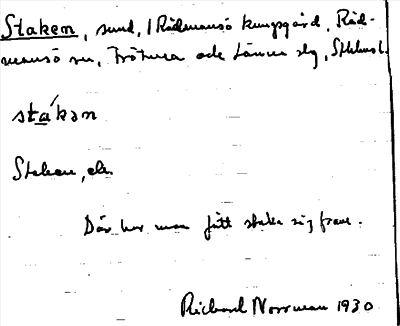 Staken, sund, / Rådmansö kungsgård, Råd-
mansö sn, Frötuna och Länna slg, Sthlms l.
stákən
Staken,
Där har man fått staka sig fram.
Richard Norrman 1930